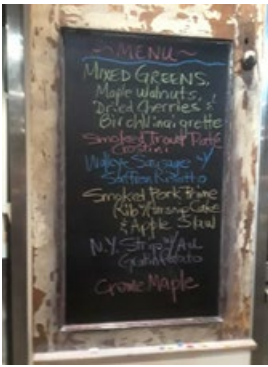 ~MENU~
MIXED GREENS,
Maple Walnuts,
Dried Cherries &
Birch Vinaigrette
Smoked Trout Pate
Crostini
Walleye Sausage w/
Saffron Risotto
Smoked Pork Prime
Rib w/Parsnip Cake
& Apple Slaw
N.Y. Strip w/Au
Gratin Potato
Creme Maple